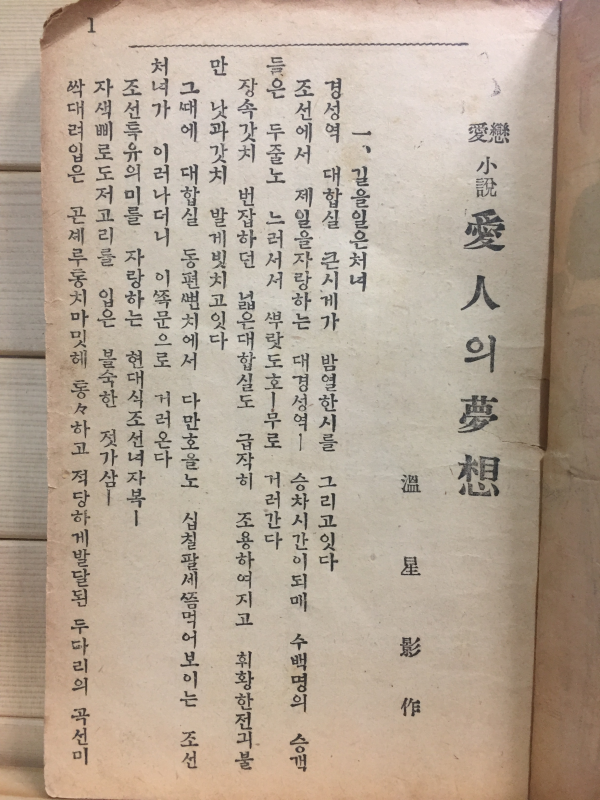 1
戀愛
小說
愛人의夢想
溫星影作
一、길을일은처녀
경성역 대합실 큰시게가 밤열한시를 그리고잇다
조선에서 제일을자랑하는 대경성역ㅣ 승차시간이되매 수백명의 승객
들은 두줄노 느러서서 뿌랏도호ㅣ무로 거러간다
장속갓치 번잡하던 넓은대합실도 급작히 조용하여지고 휘황한전긔불
만 낫과갓치 발게빗치고잇다
그때에 대합실 동편뻰치에서 다만호을노 십칠팔세쯤먹어보이는 조선
처녀가 이러나더니 이쪽문으로 거러온다
조선특유의미를 자랑하는 현대식조선녀자복ㅣ
자색삐로도저고리를 입은 불숙한 젓가삼ㅣ
싹대려입은 곤셰루통치마밋헤 통々하고 적당하게발달된 두다리의 곡선미